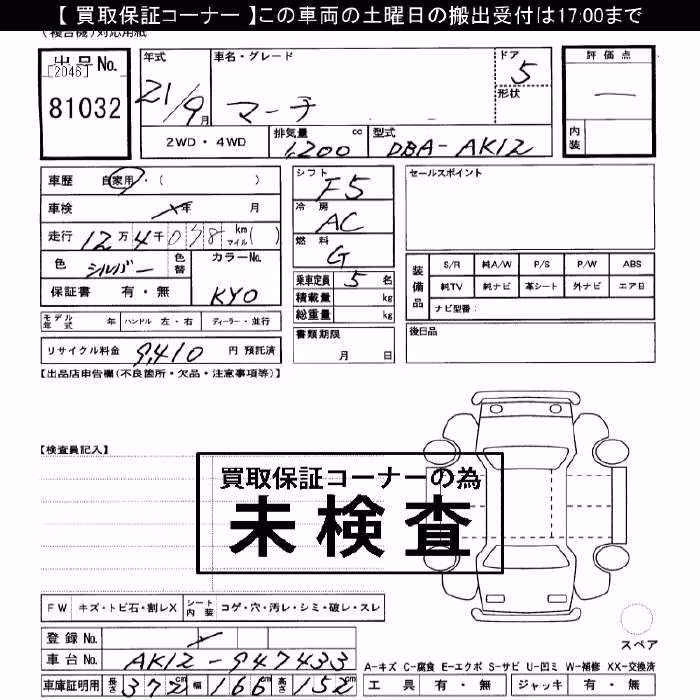 【 買取保証コーナー 】この車両の土曜日の搬出受付は17:00まで
(複合機)対応用紙
出品No.
[2046]
81032
年式
21/9月
車名・グレード
マーチ
ドア
5
形状
評価点
―
内装
2WD・4WD
排気量 cc
1,200
型式
DBA-AK12
車歴 自家用・( )
車検 年 月
走行 12万4千038 km マイル( )
色 シルバー
色替
カラーNo.
KY0
保証書 有・無
モデル年式 年 ハンドル 左・右 ディーラー・並行
リサイクル料金 9,410 円 預託済
シフト
F5
冷房
AC
燃料
G
乗車定員 5 名
積載量 kg
総重量 kg
書類期限
月 日
セールスポイント
装備品
S/R 純A/W P/S P/W ABS
純TV 純ナビ 革シート 外ナビ エアB
ナビ型番:
後日品
【出品店申告欄(不良箇所・欠品・注意事項等)】
【検査員記入】
買取保証コーナーの為
未検査
FW キズ・トビ石・割レX シート内装 コゲ・穴・汚レ・シミ・破レ・スレ
登録No.
車台No. AK12-947433
車庫証明用 長さ 372cm 幅 166cm 高さ 152cm
スペア
A-キズ C-腐食 E-エクボ S-サビ U-凹ミ W-補修 XX-交換済
工具 有・無 ジャッキ 有・無